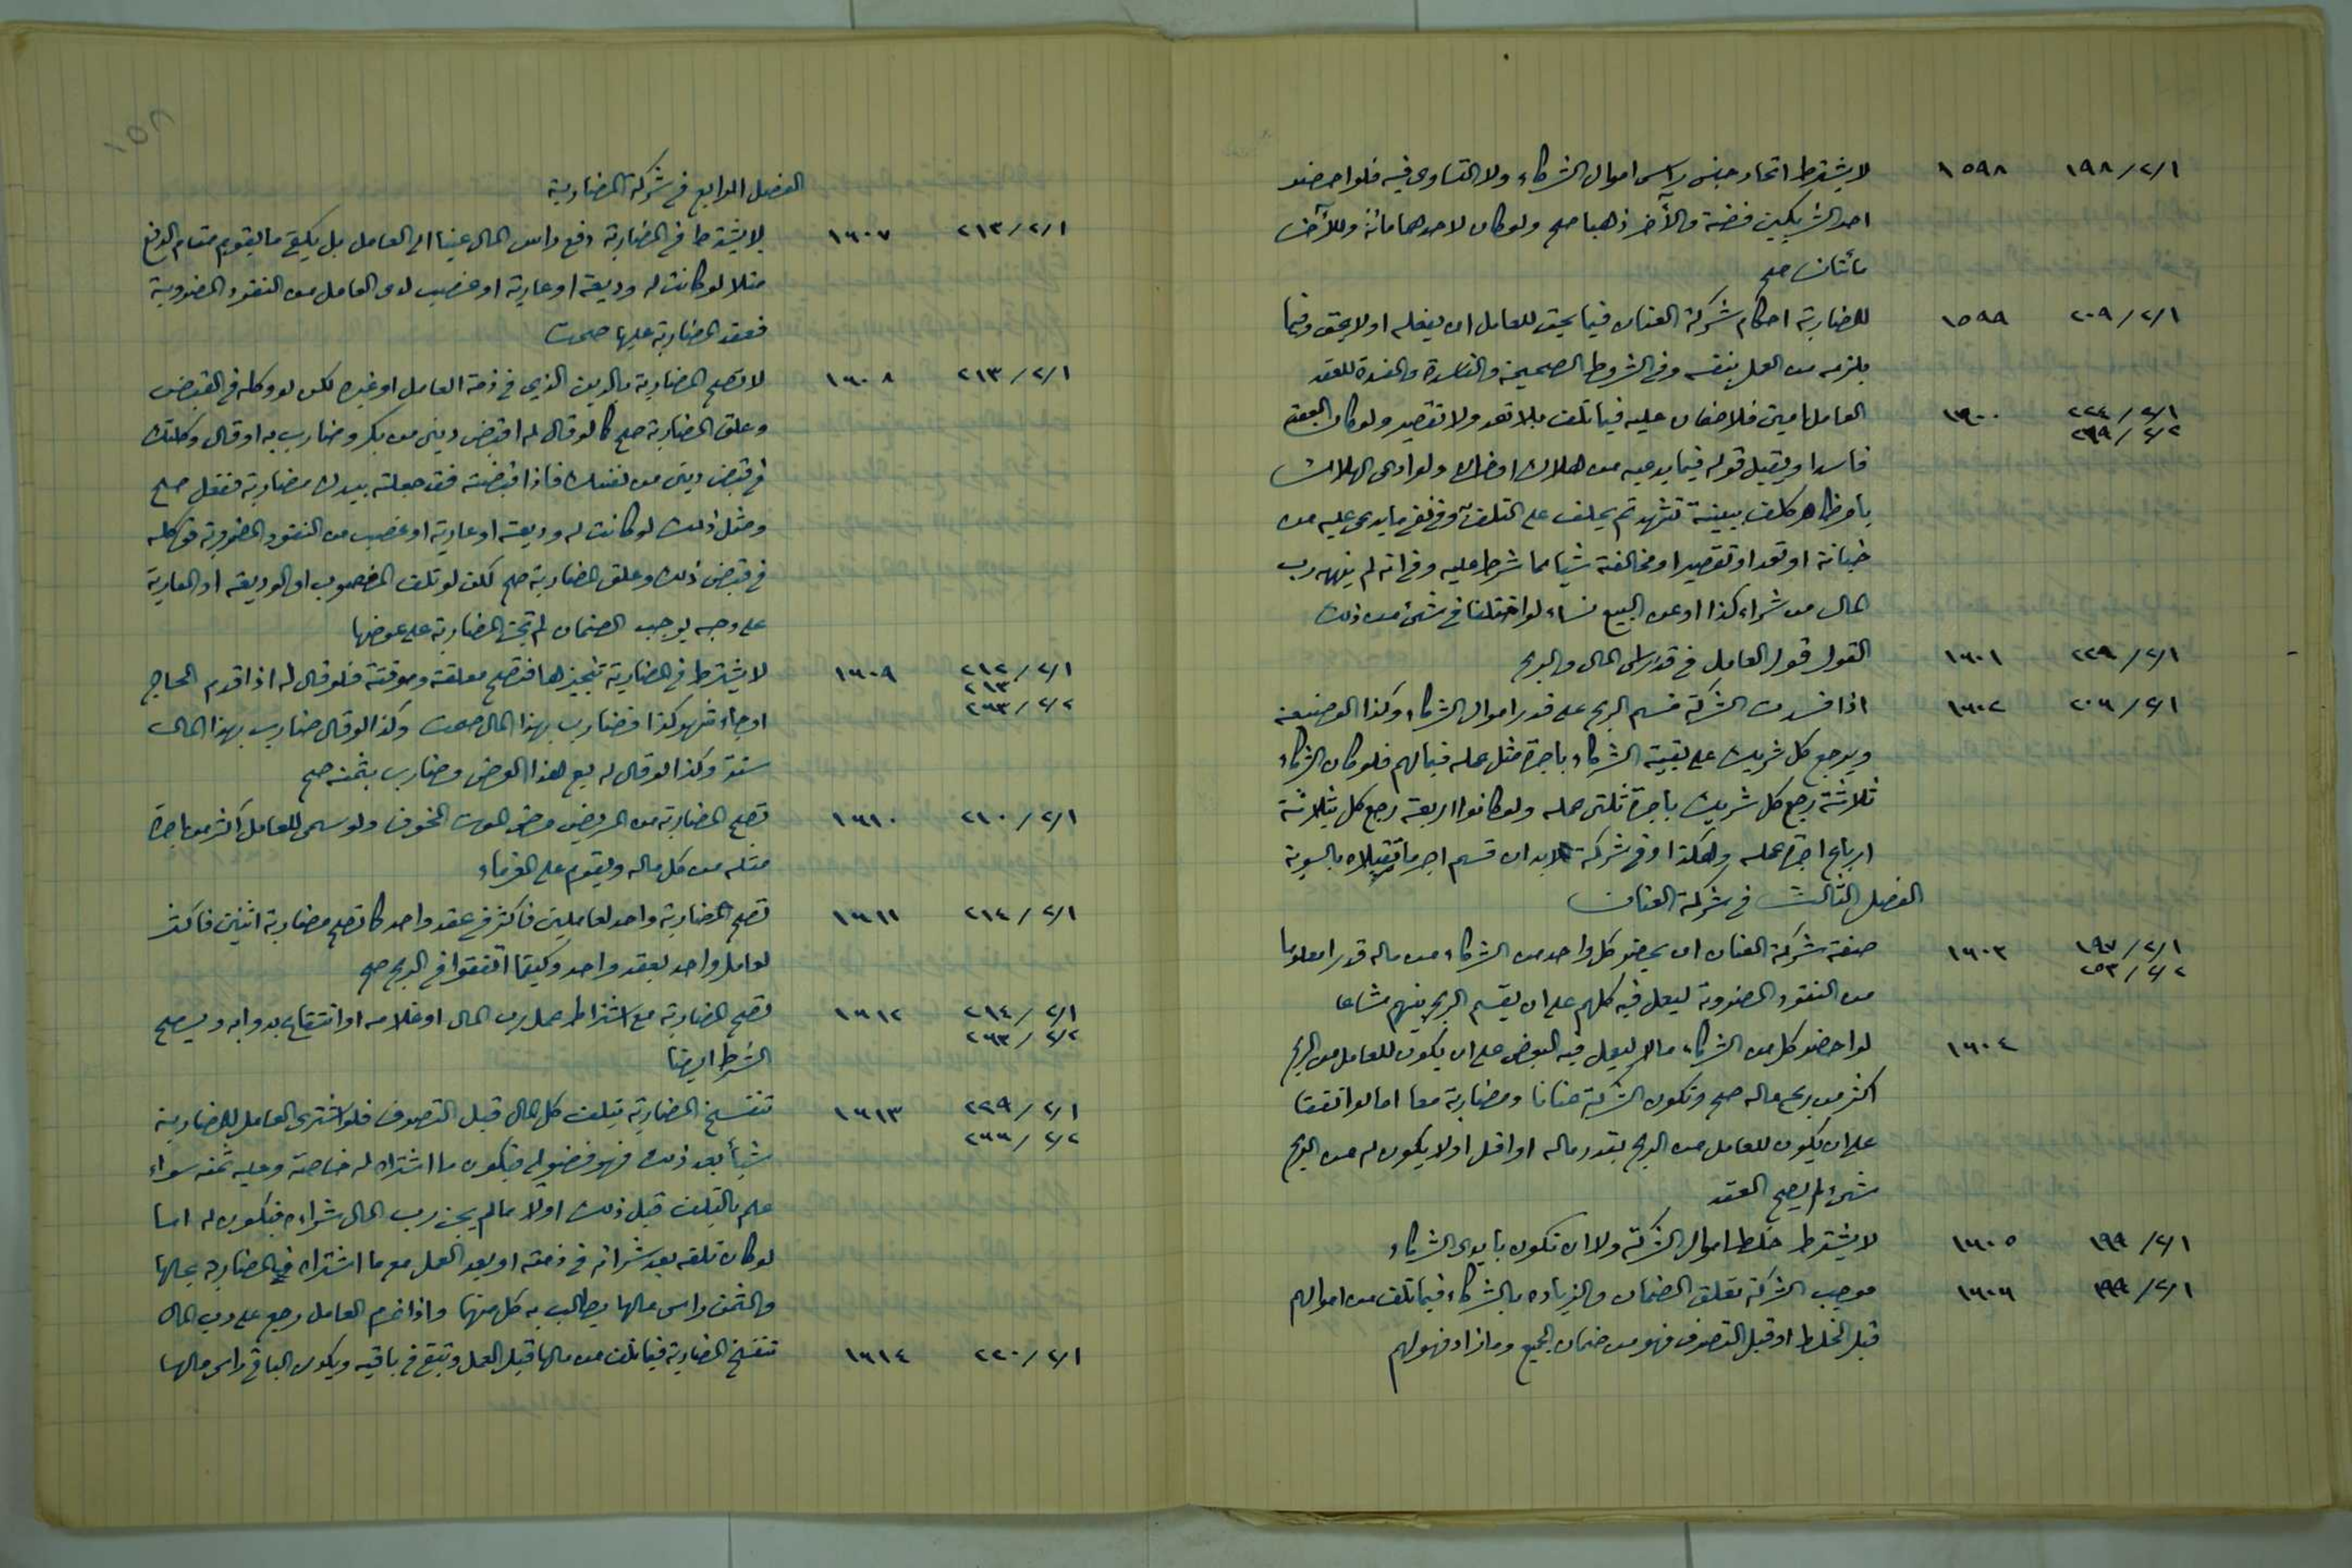 ١٩٨/٢/١ ١٥٩٨ لا يشترط اتحاد جنس راس اموال الشركاء ولا التساوى فيه فلو احضر
احد الشريكين فضة والآخر ذهبا صح ولو كان لاحدهما مائة وللآخر
مأتان صح
٢٠٩/٢/١ ١٥٩٩ للمضاربة احكام شركة العنان فيما يحق للعامل ان يفعله او لا يحق وفيما
يلزمه من العمل بنفسه وفي الشروط الصحيحة والفاسدة والمفسدة للعقد
٢٢٤/٢/١ ١٦٠٠ العامل امين فلا ضمان عليه فيما تلف بلا تعد ولا تقصير ولو كان العقد
٢٦٩/٢/٢
فاسدا ويقبل قوله فيما يدعيه من هلاك او خسران ولو ادعى الهلاك
بامر ظاهر كلف ببينة تشهد ثم يحلف على التلف به وفي نفي ما يدعى عليه من
خيانة او تعد او تقصير او مخالفة شيئا مما شرط عليه وفي انه لم ينهه رب
المال من شراء كذا او عن البيع نساء لو اختلفا في شئ من ذلك
٢٢٩/٢/١ ١٦٠١ القول قول العامل في قدر راس المال والربح
٢٠٦/٢/١ ١٦٠٢ اذا فسدت الشركة قسم الربح على قدر اموال الشركاء وكذا الوضيعة
ويرجع كل شريك على بقية الشركاء باجرة مثل عمله فيما لهم فلو كان الشركاء
ثلاثة رجع كل شريك باجرة ثلثى عمله ولو كانوا اربعة رجع كل بثلاثة
ارباع اجرة عمله وهكذا وفي شركة الابدان قسم اجر ما تقبلاه بالسوية
الفصل الثالث في شركة العنان
١٩٧/٢/١ ١٦٠٣ صفة شركة العنان ان يحضر كل واحد من الشركاء من ماله قدرا معلوما
٢٥٣/٢/٢
من النقود المضروبة ليعمل فيه كلهم على ان يقسم الربح بينهم مشاعا
١٦٠٤ لو احضر كل من الشركاء مالا ليعمل فيه البعض على ان يكون للعامل من الربح
اكثر من ربح ماله صح وتكون الشركة عنانا ومضاربة معا اما لو اتفقا
على ان يكون للعامل من الربح بقدر ماله او اقل او لا يكون له من الربح
شئ لم يصح العقد
١٩٩/٢/١ ١٦٠٥ لا يشترط خلط اموال الشركة ولا ان تكون بأيدى الشركاء
١٩٩/٢/١ ١٦٠٦ موجب الشركة تعلق الضمان والزيادة بالشركاء فيما تلف من اموالهم
قبل الخلط او قبل التصرف فهو من ضمان الجميع وما زاد فهو لهم
١٥٨
الفصل الرابع في شركة المضاربة
٢١٣/٢/١ ١٦٠٧ لا يشترط في المضاربة دفع راس المال عينا الى العامل بل يكفي ما يقوم مقام الدفع
مثلا لو كانت له وديعة او عارية او غصب لدى العامل من النقود المضروبة
فعقد المضاربة عليها صحت
٢١٣/٢/١ ١٦٠٨ لا تصح المضاربة بالدين الذي في ذمة العامل او غيره لكن لو وكله في القبض
وعلق المضاربة صح كما لو قال له اقبض دينى من بكر وضارب به او قال وكلتك
في قبض دينى من نفسك فاذا قبضته فقد جعلته بيدك مضاربة ففعل صح
ومثل ذلك لو كانت له وديعة او عارية او غصب من النقود المضروبة فوكله
في قبض ذلك وعلق المضاربة صح لكن لو تلف المغصوب او الوديعة او العارية
على وجه يوجب الضمان لم تجز المضاربة على عوضها
٢١٢/٢/١ ١٦٠٩ لا يشترط في المضاربة تنجيزها فتصح معلقة وموقتة فلو قال له اذا قدم الحاج
٢١٣
٢٦٣/٢/٢
او جاء شهر كذا فضارب بهذا المال صحت وكذا لو قال ضارب بهذا المال
سنة وكذا لو قال له بع هذا العرض وضارب بثمنه صح
٢١٠/٢/١ ١٦١٠ تصح المضاربة من المريض مرض الموت المخوف ولو سمى للعامل اكثر من اجرة
مثله من كل ماله ويقدم على الغرماء
٢١٤/٢/١ ١٦١١ تصح المضاربة واحد لعاملين فاكثر في عقد واحد كما تصح مضاربة اثنين فاكثر
لعامل واحد بعقد واحد وكيفما اتفقوا في الربح صح
٢١٤/٢/١ ١٦١٢ تصح المضاربة مع اشتراط عمل رب المال او غلامه او انتفاع بدوابه ويصح
٢٦٣/٢/٢
الشرط ايضا
٢٢٩/٢/١ ١٦١٣ تنفسخ المضاربة بتلف كل المال قبل التصرف فلو اشترى العامل للمضاربة
٢٦٦/٢/٢
شيأ بعد ذلك فهو فضولي فيكون ما اشتراه له خاصة وعليه ثمنه سواء
علم بالتلف قبل ذلك او لا ما لم يجز رب المال شراءه فيكون له اما
لو كان تلفه بعد شرائه في ذمته او بعد العمل مع ما اشتراه فالمضاربة بحالها
والثمن راس مالها يطالب به كل منهما واذا غرم العامل رجع على رب المال
٢٢٠/٢/١ ١٦١٤ تنفسخ المضاربة فيما تلف من مالها قبل العمل وتبقى في باقيه ويكون الباقي راس مالها